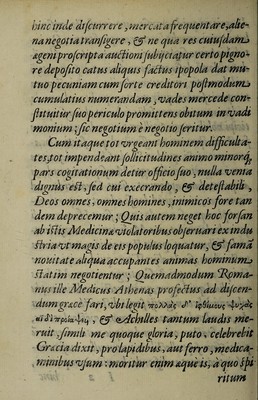 hinc inde discurrere, mercata frequentare, alie-
na negotia transigere, & ne qua res cuiusdam
agenti proscripta auctioni subijciatur certo pigno-
re deposito catus aliquis factus ipopola dat mu-
tuo pecuniam cum forte creditori postmodum
cumulatius numerandam, vades mercede con-
stituitur suo periculo promittens obitum in vadi
monium; sic negotium è negotio seritur.
Cum itaque tot vrgeant hominem difficulta-
tes, tot impendeant sollicitudines animo minorq́;
pars cogitationum detur officio suo, nulla venia
dignus est, sed cui execrando, & detestabili
Deos omnes, omnes homines, inimicos fore tan
dem deprecemur; Quis autem neget hoc forsan
ab istis Medicinæ violatoribus obseruari ex indu
stria vt magis de eis populus loquatur, & famã
nouitate aliqua accupantes animas hominum
statim negotientur; Quemadmodum Roma-
nus ille Medicus Athenas profectus ad discen-
dum græce fari, vbi legit πολλὰς δ' ἰφθίμους ψυχὰς
ἄϊδι προΐαψεν, & Achilles tantum laudis me-
ruit, simili me quoque gloria, puto, celebrebit
Græcia dixit, pro lapidibus, aut ferro, medica-
minibus vsum: moritur enim æque is, à quo spi
ritum